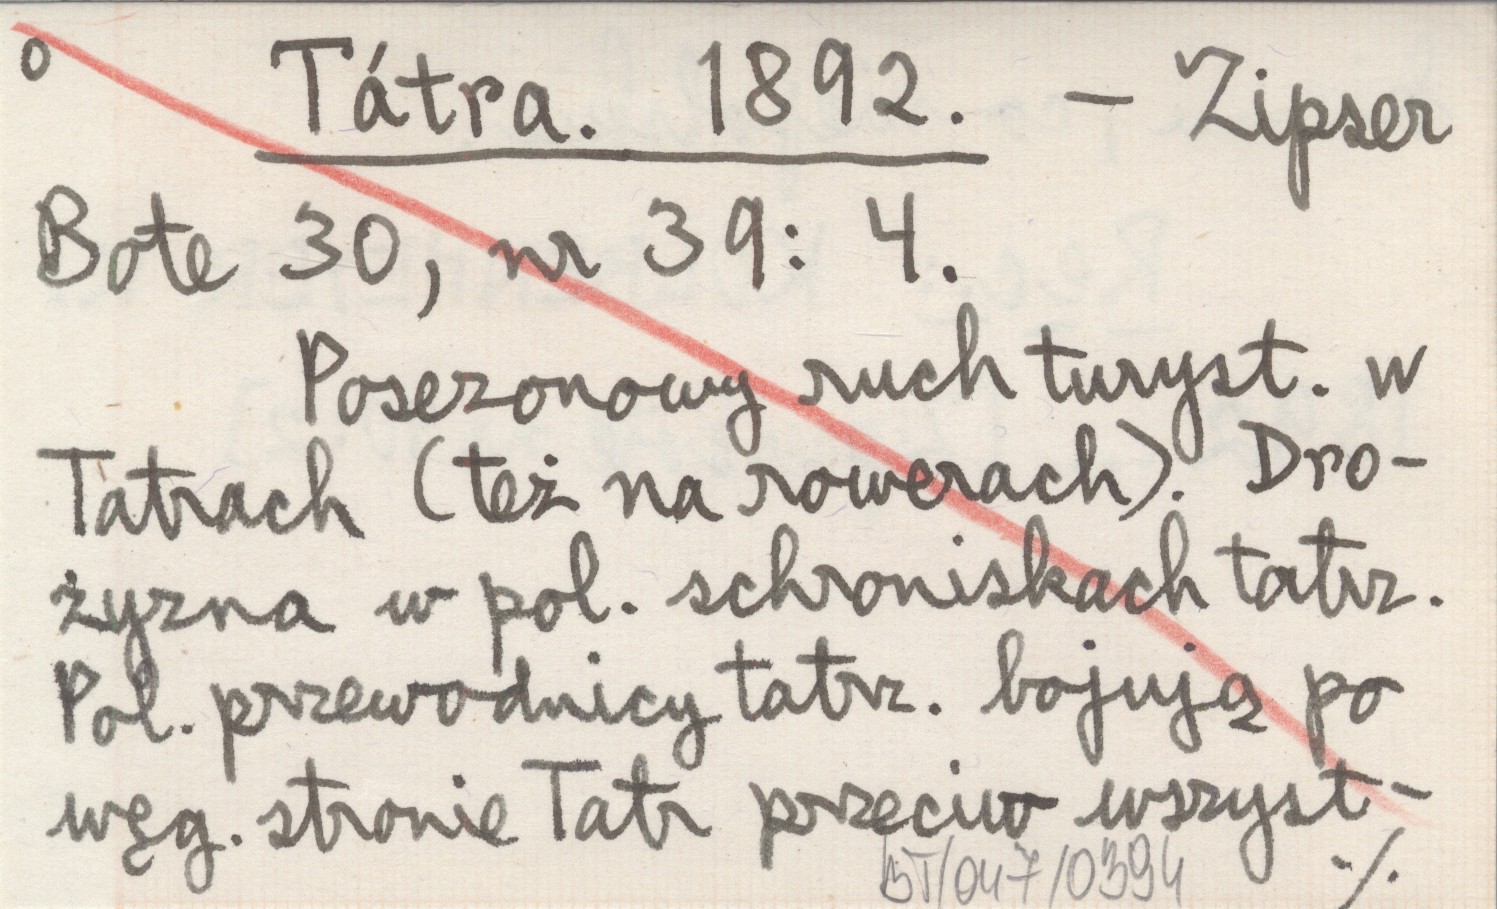 o Tátra. 1892. – Zipser
Bote 30, nr 39: 4.
Posezonowy ruch turyst. w
Tatrach (też na rowerach). Dro-
żyzna w pol. schroniskach tatrz.
Pol. przewodnicy tatrz. bojują po
węg. stronie Tatr przeciw wszyst-
BT/047/0394 ./.